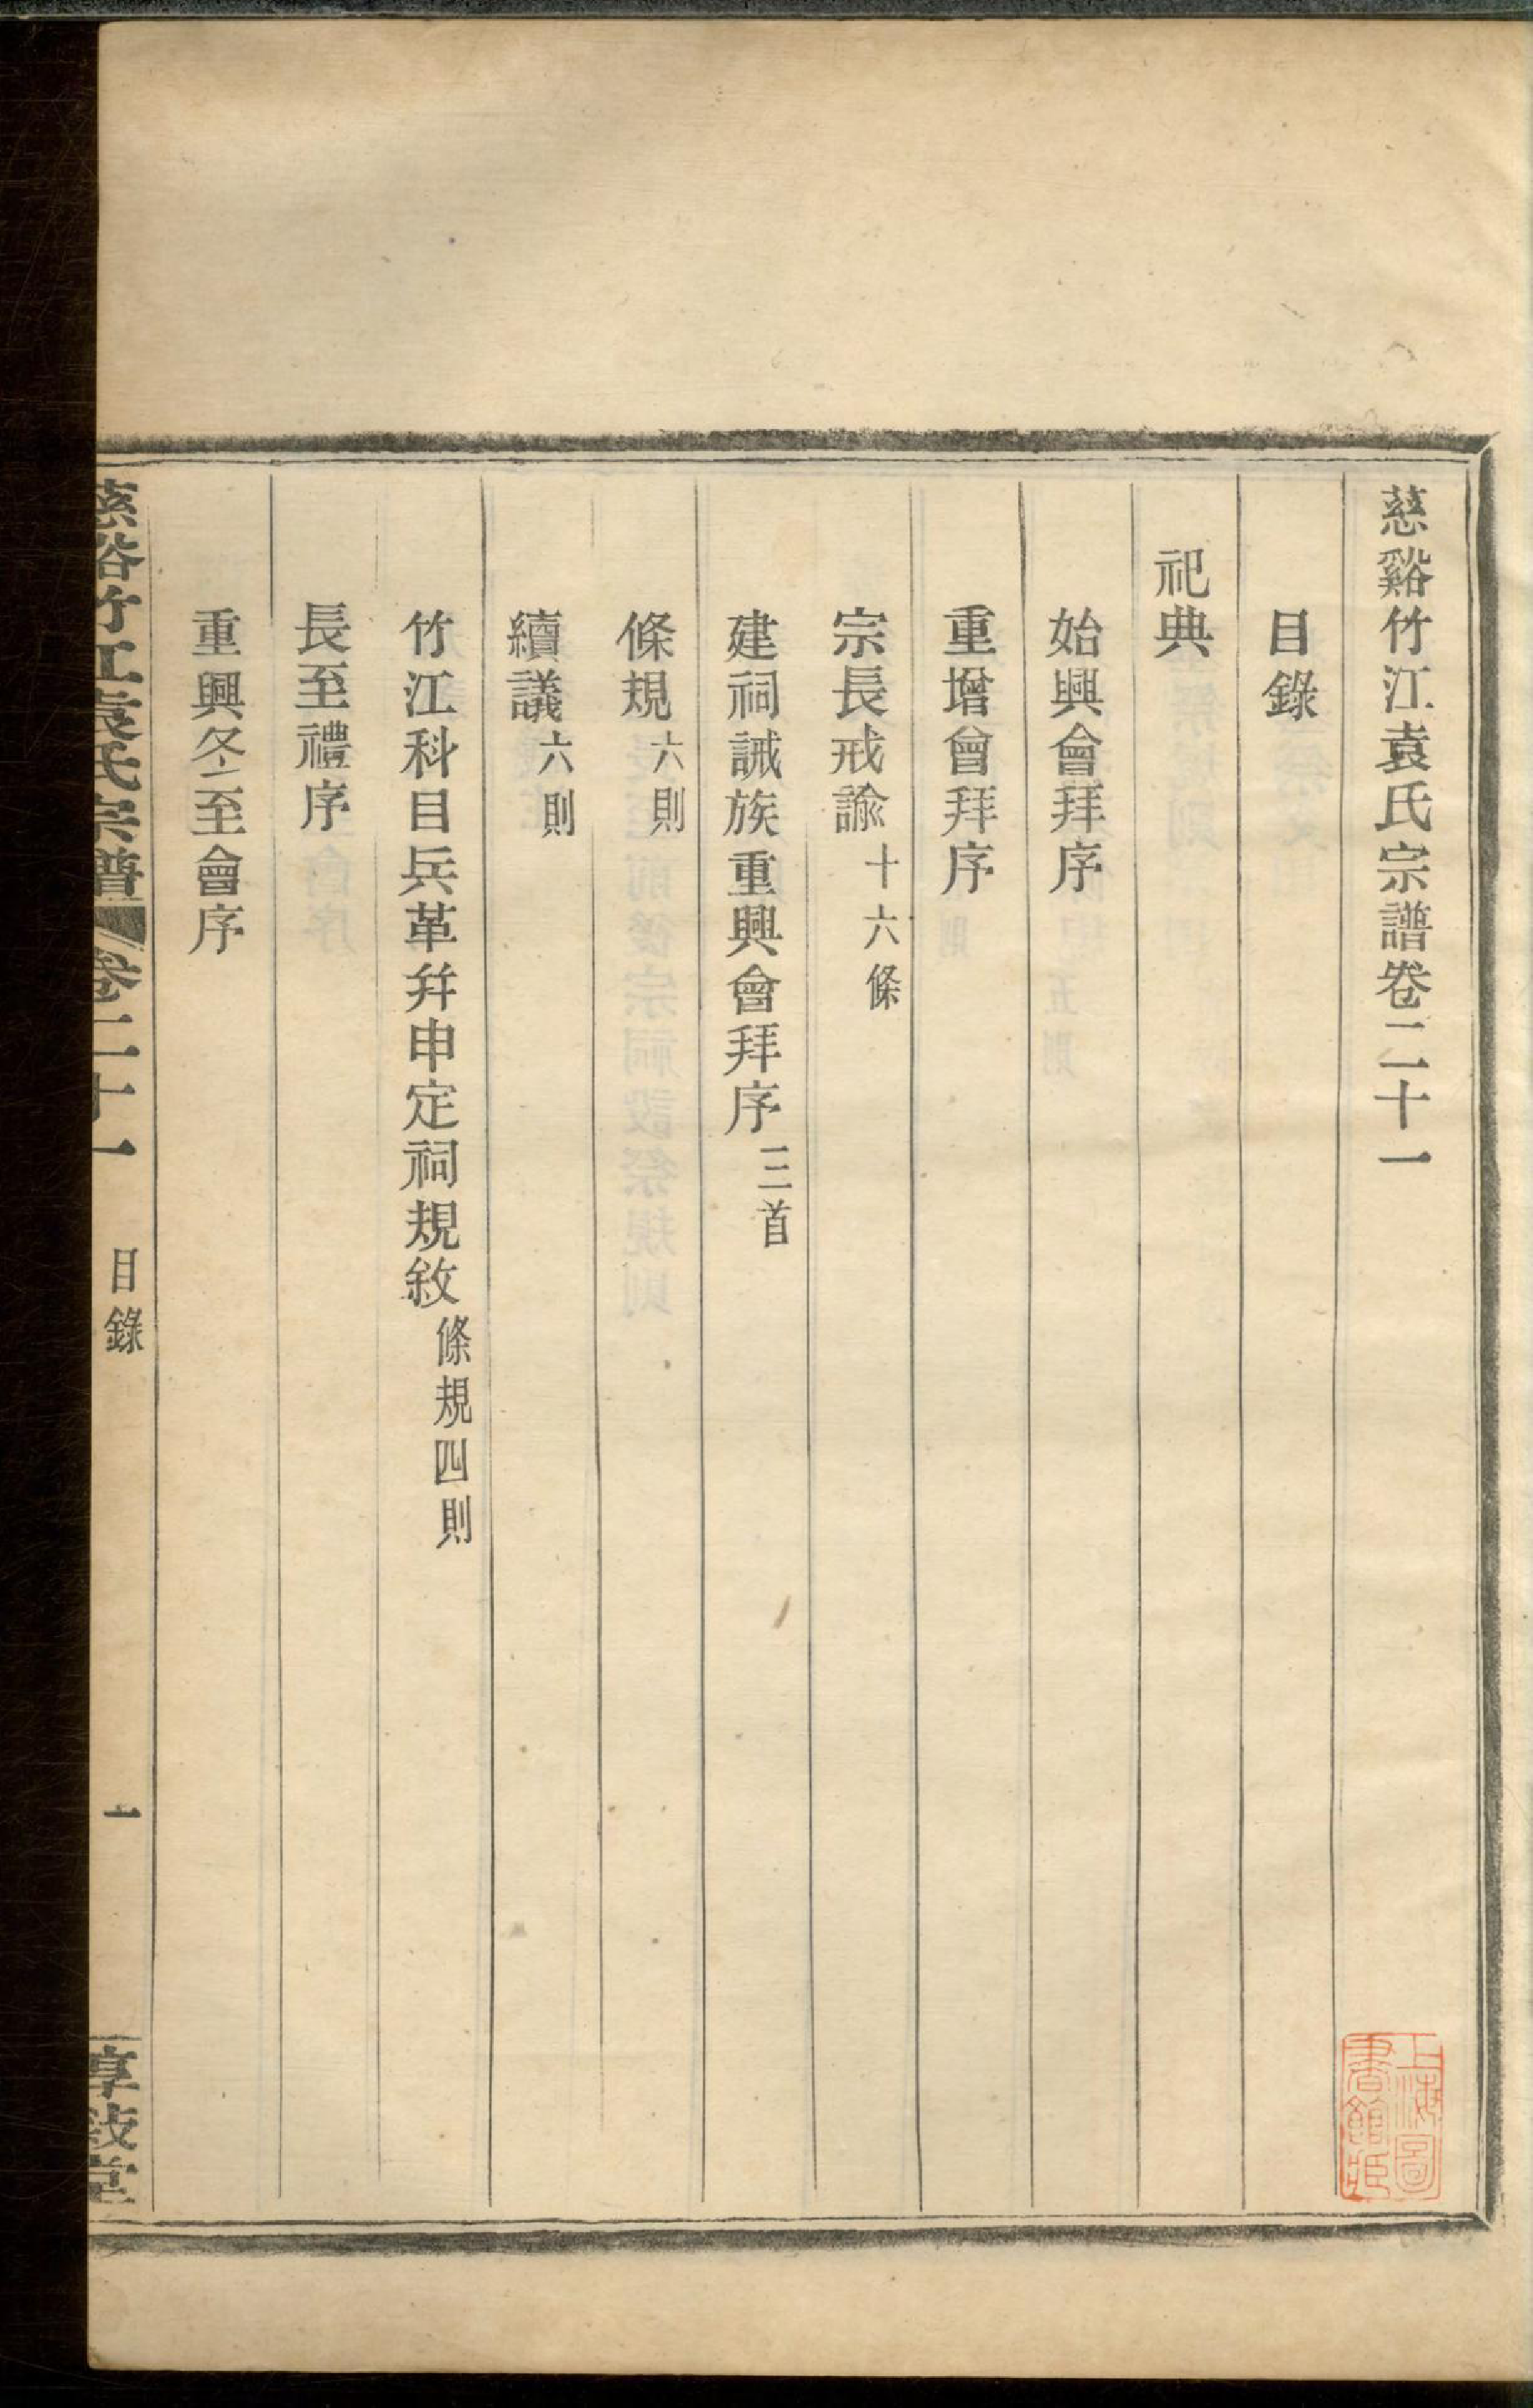 慈谿竹江袁氏宗譜卷二十一
目錄
祀典
始興會拜序
重增會拜序
宗長戒諭十六條
建祠誡族重興會拜序三首
條規六則
續議六則
竹江科目兵革幷申定祠規敘條規四則
長至禮序
重興冬至會序
慈谿竹江袁氏宗譜 卷二十一 目錄 一 享敍堂
上海圖書館藏